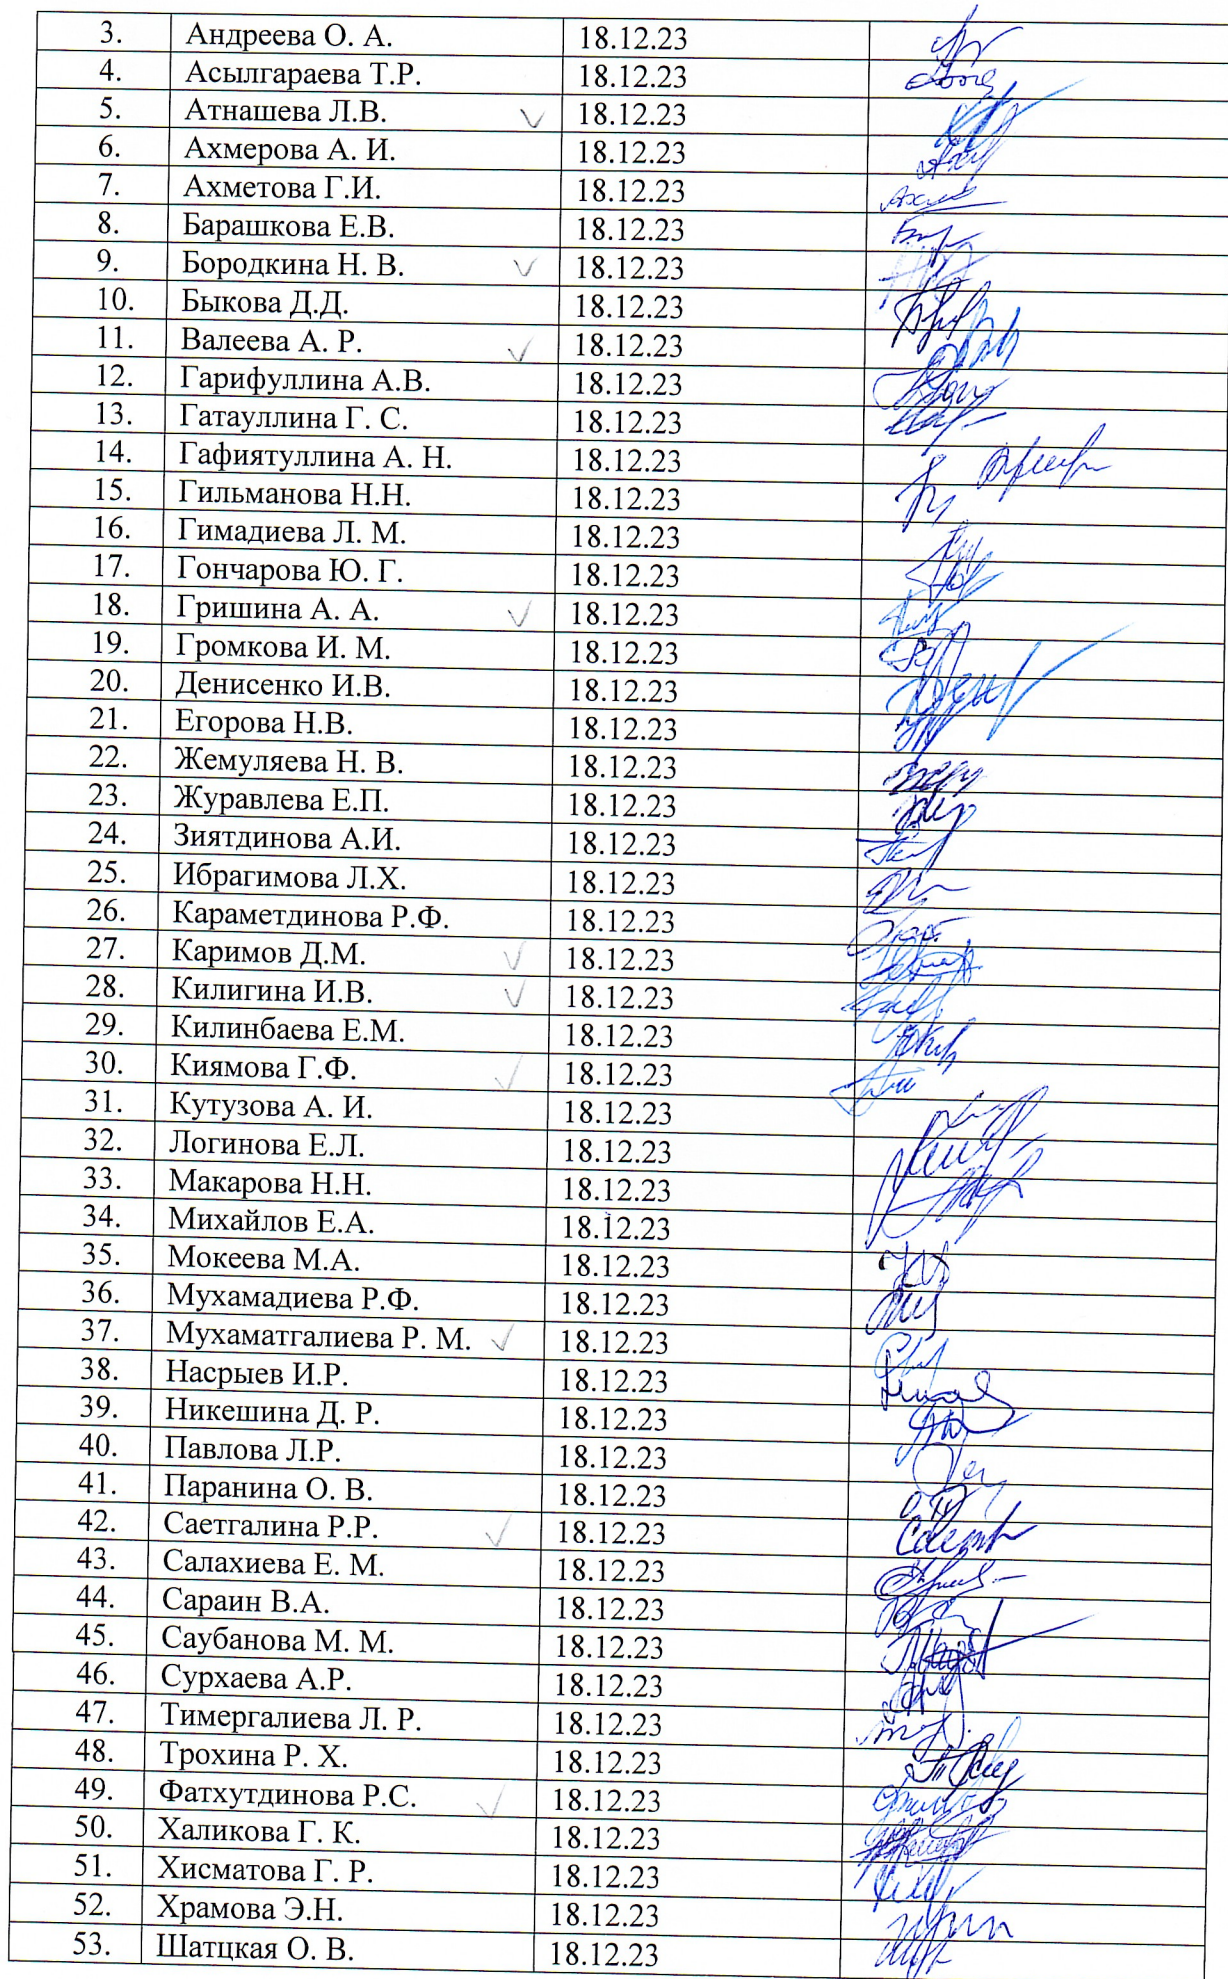 3. Андреева О. А. 18.12.23
4. Асылгараева Т.Р. 18.12.23
5. Атнашева Л.В. 18.12.23
6. Ахмерова А. И. 18.12.23
7. Ахметова Г.И. 18.12.23
8. Барашкова Е.В. 18.12.23
9. Бородкина Н. В. 18.12.23
10. Быкова Д.Д. 18.12.23
11. Валеева А. Р. 18.12.23
12. Гарифуллина А.В. 18.12.23
13. Гатауллина Г. С. 18.12.23
14. Гафиятуллина А. Н. 18.12.23
15. Гильманова Н.Н. 18.12.23
16. Гимадиева Л. М. 18.12.23
17. Гончарова Ю. Г. 18.12.23
18. Гришина А. А. 18.12.23
19. Громкова И. М. 18.12.23
20. Денисенко И.В. 18.12.23
21. Егорова Н.В. 18.12.23
22. Жемуляева Н. В. 18.12.23
23. Журавлева Е.П. 18.12.23
24. Зиятдинова А.И. 18.12.23
25. Ибрагимова Л.Х. 18.12.23
26. Караметдинова Р.Ф. 18.12.23
27. Каримов Д.М. 18.12.23
28. Килигина И.В. 18.12.23
29. Килинбаева Е.М. 18.12.23
30. Киямова Г.Ф. 18.12.23
31. Кутузова А. И. 18.12.23
32. Логинова Е.Л. 18.12.23
33. Макарова Н.Н. 18.12.23
34. Михайлов Е.А. 18.12.23
35. Мокеева М.А. 18.12.23
36. Мухамадиева Р.Ф. 18.12.23
37. Мухаматгалиева Р. М. 18.12.23
38. Насрыев И.Р. 18.12.23
39. Никешина Д. Р. 18.12.23
40. Павлова Л.Р. 18.12.23
41. Паранина О. В. 18.12.23
42. Саетгалина Р.Р. 18.12.23
43. Салахиева Е. М. 18.12.23
44. Сараин В.А. 18.12.23
45. Саубанова М. М. 18.12.23
46. Сурхаева А.Р. 18.12.23
47. Тимергалиева Л. Р. 18.12.23
48. Трохина Р. Х. 18.12.23
49. Фатхутдинова Р.С. 18.12.23
50. Халикова Г. К. 18.12.23
51. Хисматова Г. Р. 18.12.23
52. Храмова Э.Н. 18.12.23
53. Шатцкая О. В. 18.12.23